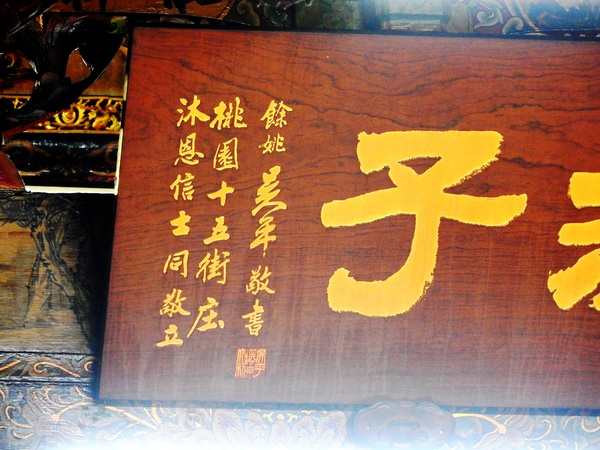 子
餘姚 吴年 敬書
桃園十五街庄
沐恩信士同敬立